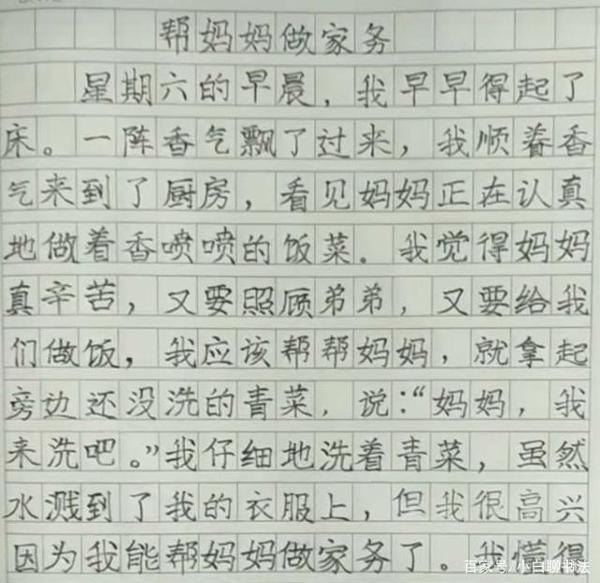 帮妈妈做家务
星期六的早晨，我早早得起了
床。一阵香气飘了过来，我顺着香
气来到了厨房，看见妈妈正在认真
地做着香喷喷的饭菜。我觉得妈妈
真辛苦，又要照顾弟弟，又要给我
们做饭，我应该帮帮妈妈，就拿起
旁边还没洗的青菜，说：“妈妈，我
来洗吧。”我仔细地洗着青菜，虽然
水溅到了我的衣服上，但我很高兴
因为我能帮妈妈做家务了。我懂得
百家号/小白聊书法